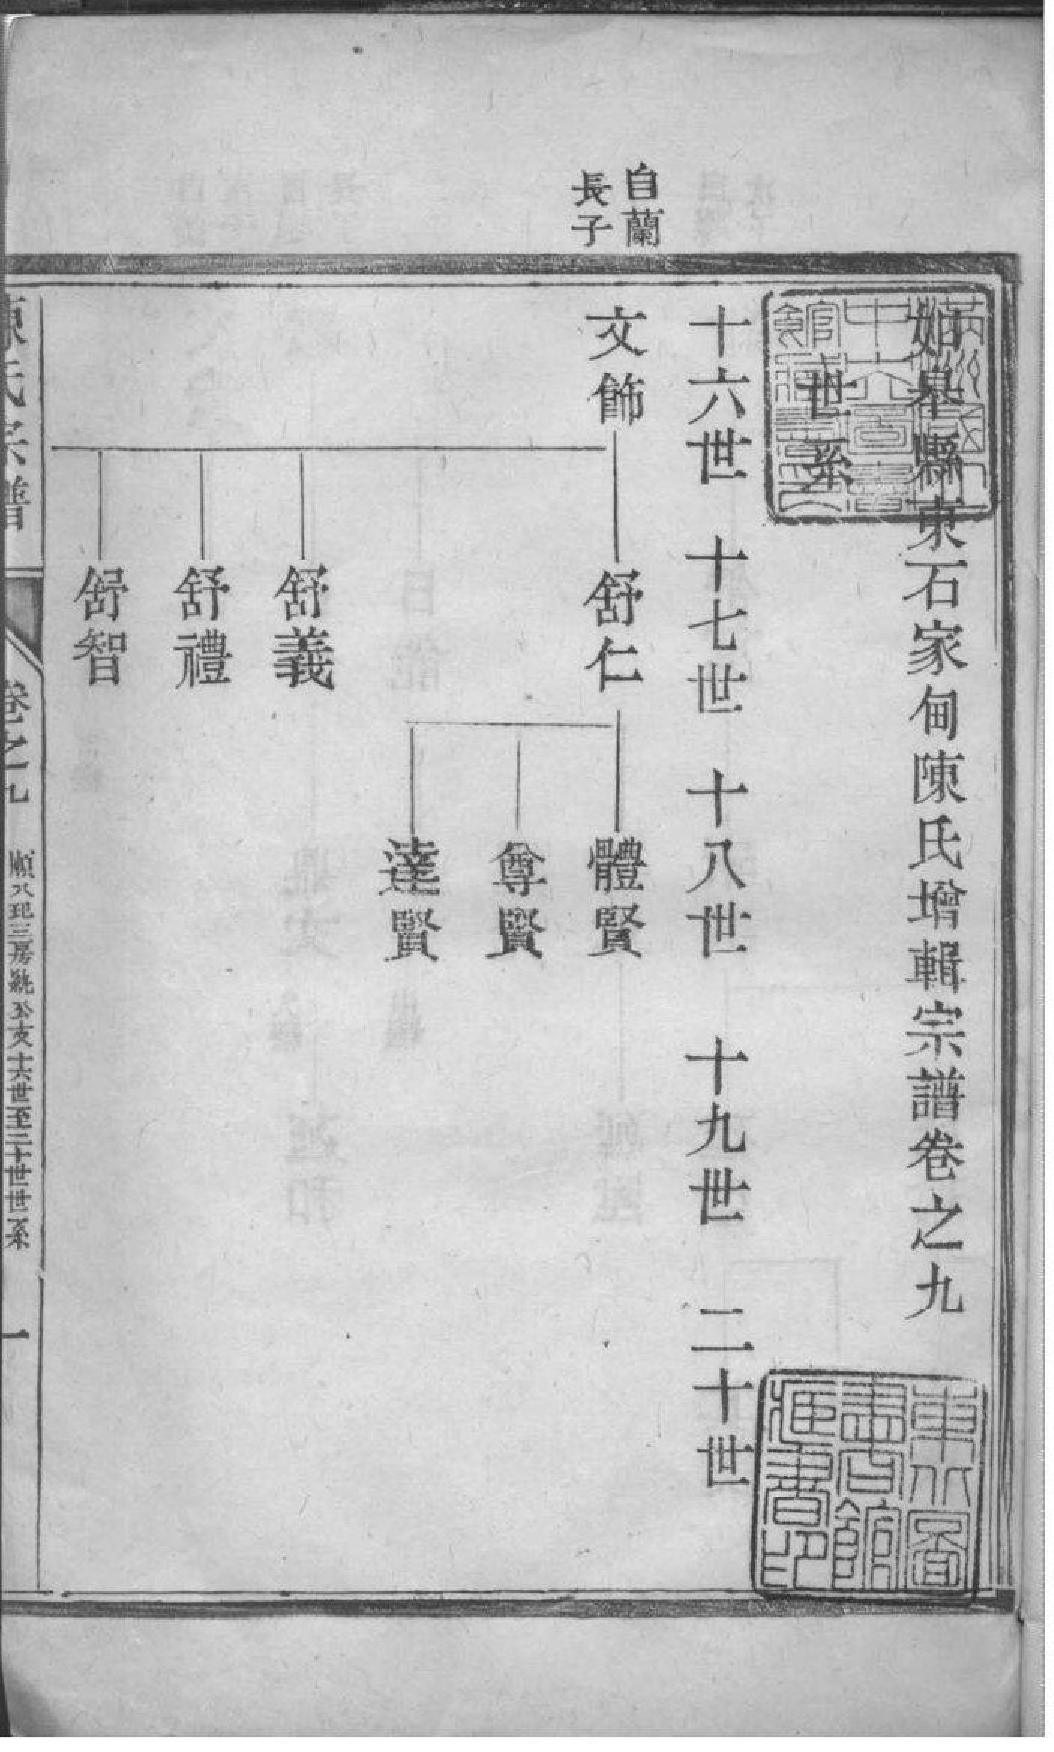 如皋縣東石家甸陳氏增輯宗譜卷之九
世系
十六世 十七世 十八世 十九世 二十世
自蘭
長子
文飾
舒仁
體賢
尊賢
達賢
舒義
舒禮
舒智
陳氏宗譜
卷之九
三房
公支十六世至二十世世系
一
東北圖
書館
藏書印